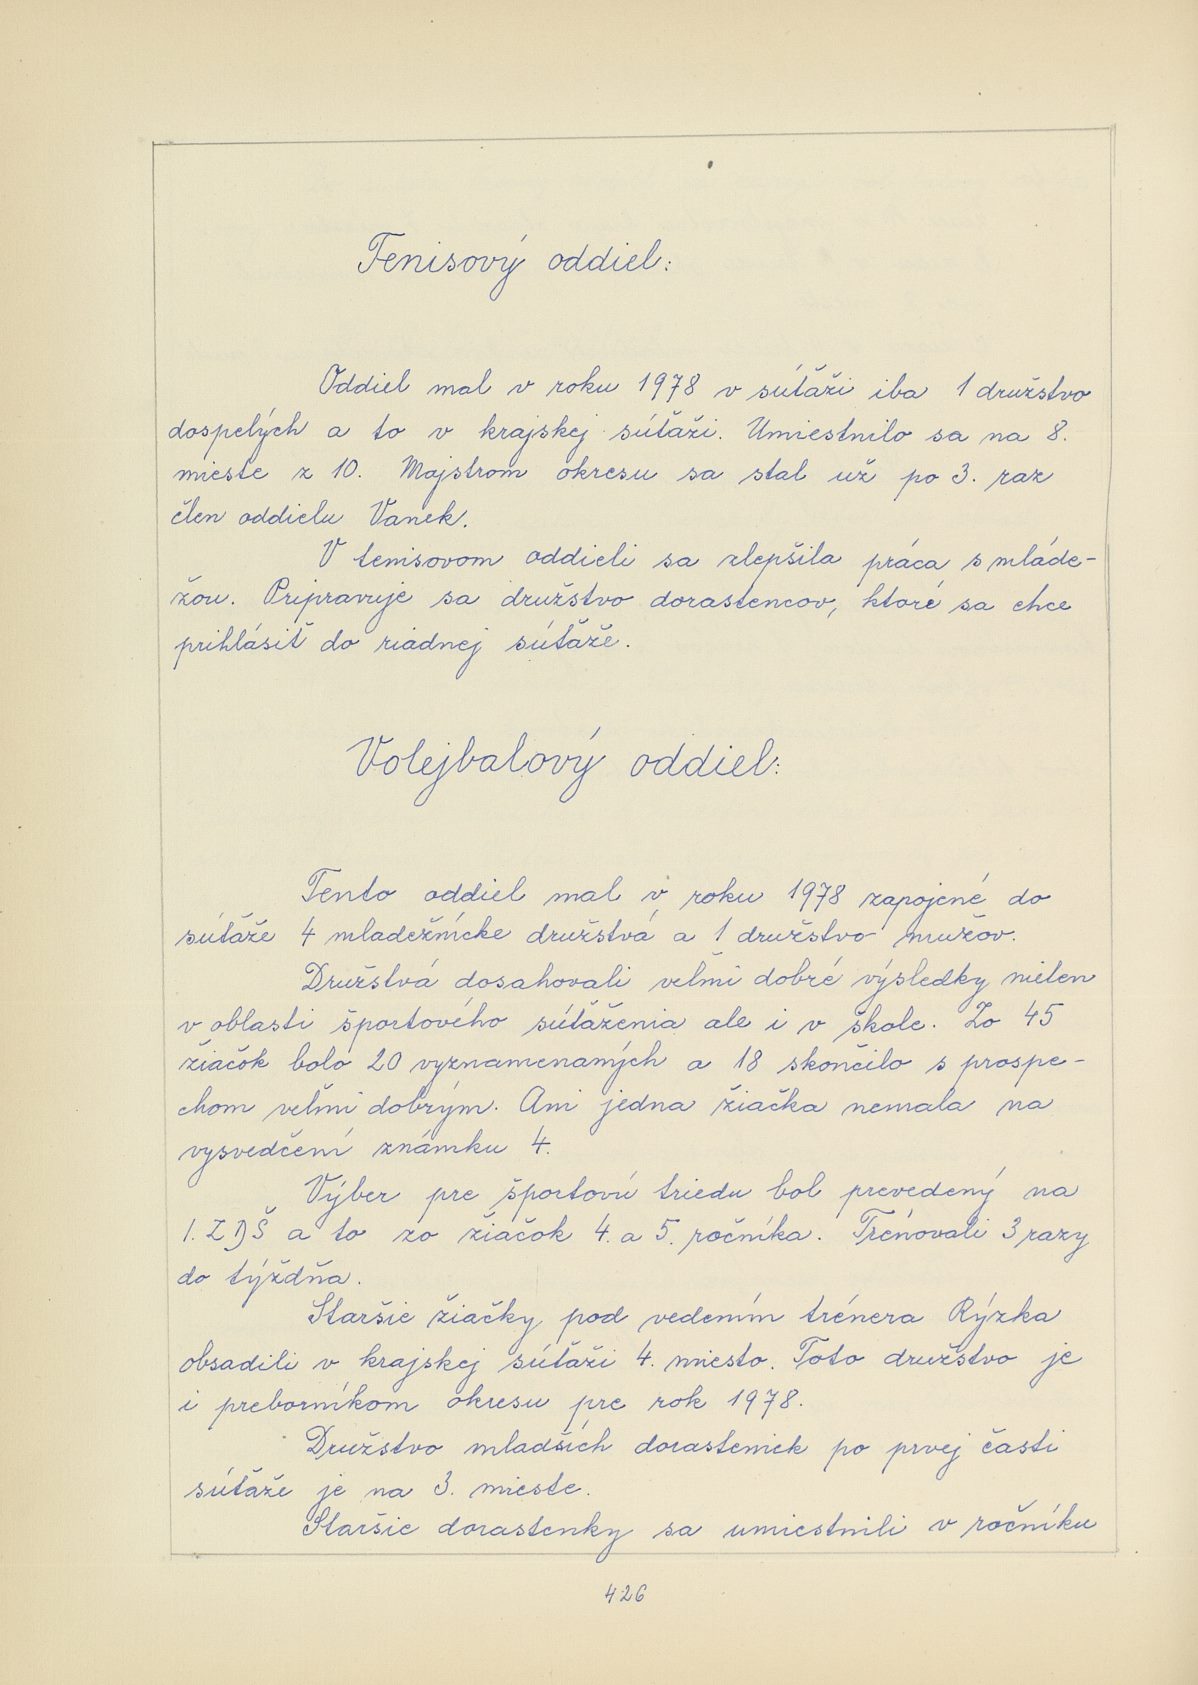 Tenisový oddiel:
Oddiel mal v roku 1978 v súťaži iba 1 družstvo
dospelých a to v krajskej súťaži. Umiestnilo sa na 8.
mieste z 10. Majstrom okresu sa stal už po 3. raz
člen oddielu Vanek.
V tenisovom oddieli sa zlepšila práca s mláde-
žou. Pripravuje sa družstvo dorastencov, ktoré sa chce
prihlásiť do riadnej súťaže.
Volejbalový oddiel:
Tento oddiel mal v roku 1978 zapojené do
súťaže 4 mladežnícke družstvá a 1 družstvo mužov.
Družstvá dosahovali veľmi dobré výsledky nielen
v oblasti športového súťaženia ale i v škole. Zo 45
žiačok bolo 20 vyznamenaných a 18 skončilo s prospe-
chom veľmi dobrým. Ani jedna žiačka nemala na
vysvedčení známku 4.
Výber pre športovú triedu bol prevedený na
1. ZDŠ a to zo žiačok 4. a 5. ročníka. Trénovali 3 razy
do týždňa.
Staršie žiačky pod vedením trénera Rýzka
obsadili v krajskej súťaži 4. miesto. Toto družstvo je
i preborníkom okresu pre rok 1978.
Družstvo mladších dorasteniek po prvej časti
súťaže je na 3. mieste.
Staršie dorastenky sa umiestnili v ročníku
426